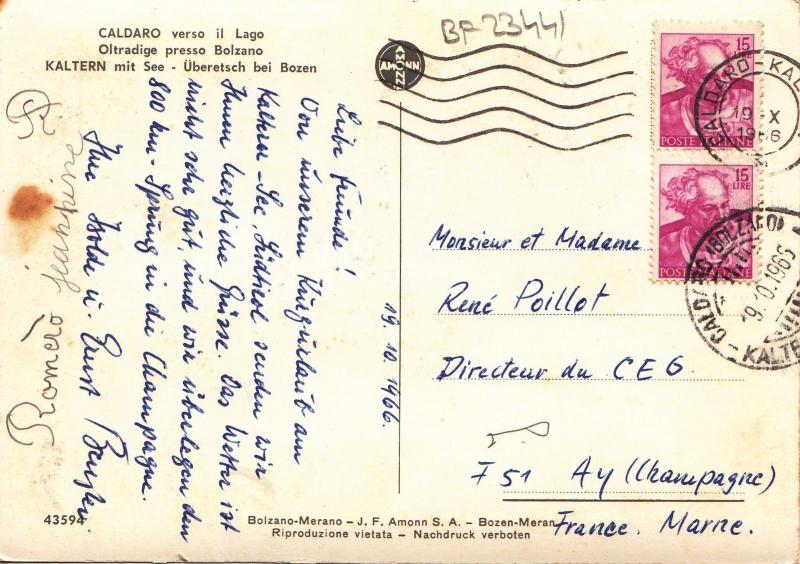 CALDARO verso il Lago
Oltradige presso Bolzano
KALTERN mit See - Überetsch bei Bozen
BF 23441
AMONN
15
LIRE
POSTE ITALIANE
15
LIRE
POSTE ITALIANE
CALDARO - KAL
19 - X
1966
CALDARO (BOLZANO)
19.10.1966
- KALTE
19. 10. 1966.
Liebe Freunde!
Von unserem Kurzurlaub am
Kalterer-See, Südtirol senden wir
Ihnen herzliche Grüsse. Das Wetter ist
nicht sehr gut, und wir überlegen den
800 km - Sprung in die Champagne.
Ihre Isolde u. Ernst
Monsieur et Madame
René Poillot
Directeur du CEG
F 51 Ay (Champagne)
France. Marne.
43594
Bolzano-Merano – J. F. Amonn S. A. – Bozen-Meran
Riproduzione vietata – Nachdruck verboten